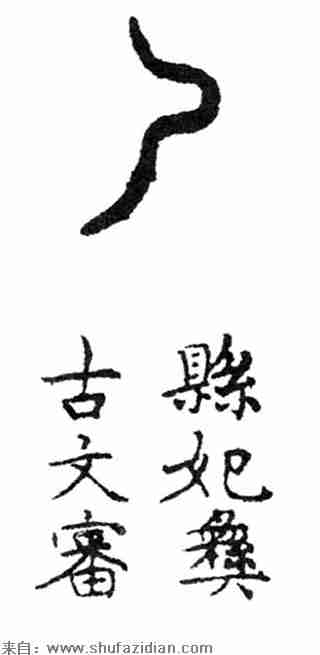 縣妃彝
古文審
来自：www.shufazidian.com